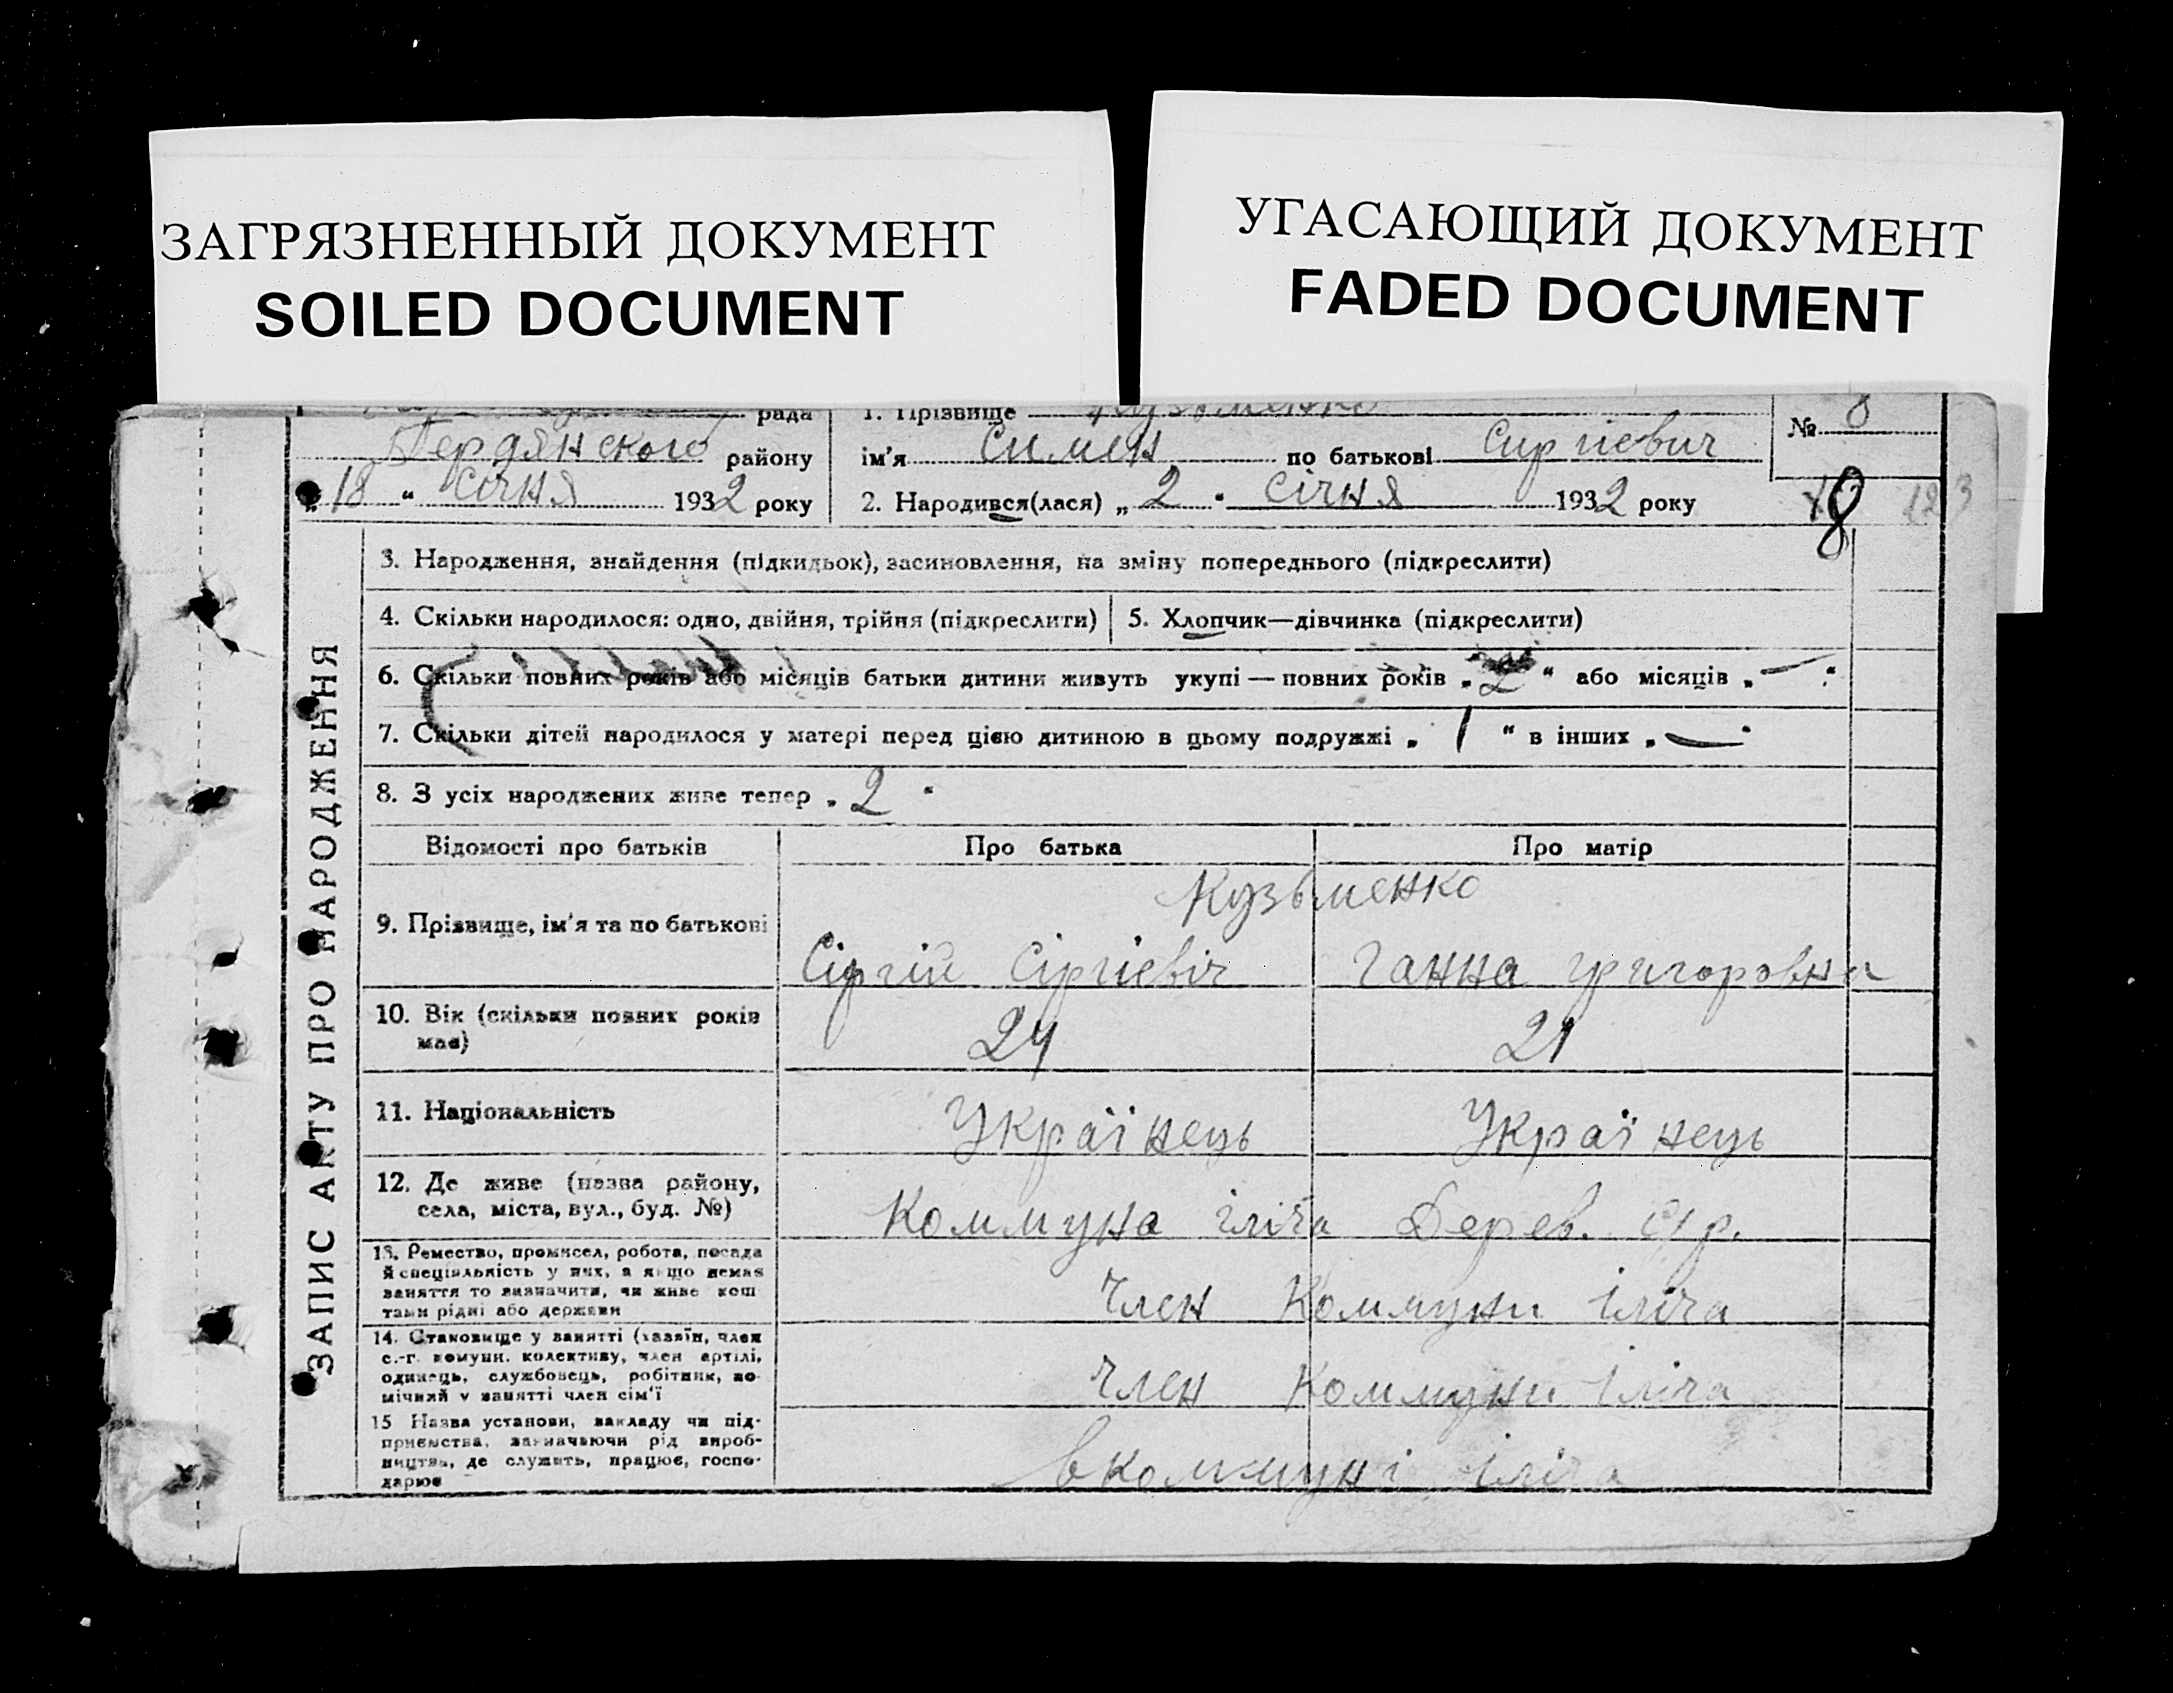 ЗАГРЯЗНЕННЫЙ ДОКУМЕНТ
SOILED DOCUMENT
УГАСАЮЩИЙ ДОКУМЕНТ
FADED DOCUMENT
рада
Бердянського району
„18 “ Січня 1932 року
1. Прізвище Кузьменко
ім'я Симен по батькові Сиргіевич
2. Народився(лася) „ 2 “ Січня 1932 року
№ 8
8
ЗАПИС АКТУ ПРО НАРОДЖЕННЯ
3. Народження, знайдення (підкидьок), засиновлення, на зміну попереднього (підкреслити)
4. Скільки народилося: одно, двійня, трійня (підкреслити)
5. Хлопчик—дівчинка (підкреслити)
6. Скільки повних років або місяців батьки дитини живуть укупі — повних років „ 2 “ або місяців „ — “
7. Скільки дітей народилося у матері перед цією дитиною в цьому подружжі „ 1 “ в інших „ — “
8. З усіх народжених живе тепер „ 2 “
Відомості про батьків
Про батька
Про матір
9. Прізвище, ім'я та по батькові
Кузьменко
Сіргій Сіргіевіч
Ганна Григоровна
10. Вік (скільки повних років має)
24
21
11. Національність
Українець
Українець
12. Де живе (назва району,
села, міста, вул., буд. №)
Коммуна Іліча Дерев.
13. Ремество, промисел, робота, посада
й спеціяльність у них, а якщо немає
заняття то зазначити, чи живе кош
тами рідні або держави
Член Коммуни Іліча
14. Становище у занятті (хазяїн, член
с.-г. комуни, колективу, член артілі,
одинець, службовець, робітник, по-
мічний у занятті член сім'ї
Член Коммуни Іліча
15 Назва установи, закладу чи під-
приємства, зазначаючи рід вироб-
ництва, де служить, працює, госпо-
дарює
В коммуні Іліча